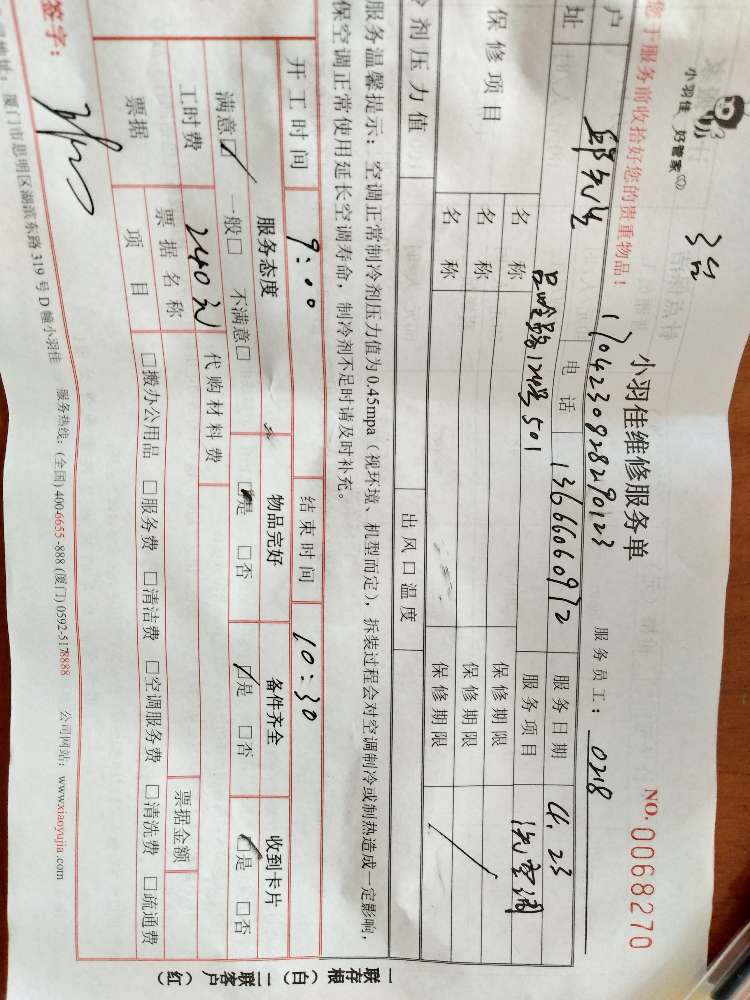 小羽佳 好管家
3台
小羽佳维修服务单
NO.0068270
您于服务前收拾好您的贵重物品！
1704230928290123
服务员工： 0218
户
电话 13666060972
服务日期 4.23
址
501
服务项目 洗空调
保修项目
名称
保修期限
名称
保修期限
名称
保修期限
冷剂压力值
出风口温度
服务温馨提示：空调正常制冷剂压力值为0.45mpa（视环境、机型而定），拆装过程会对空调制冷或制热造成一定影响，
保空调正常使用延长空调寿命，制冷剂不足时请及时补充。
开工时间 9:00 结束时间 10:30
服务态度 物品完好 备件齐全 收到卡片
满意☑ 一般□ 不满意□ ☑是 □否 ☑是 □否 ☑是 □否
工时费 240元 代购材料费
票据 票据名称 票据金额
项目 □搬办公用品 □服务费 □清洁费 □空调服务费 □清洗费 □疏通费
签字：
厦门市思明区湖滨东路319号D幢小羽佳 服务热线：(全国)400-6655-888 (厦门) 0592-5178888 公司网站：www.xiaoyujia.com
一联存根（白） 一联客户（红）